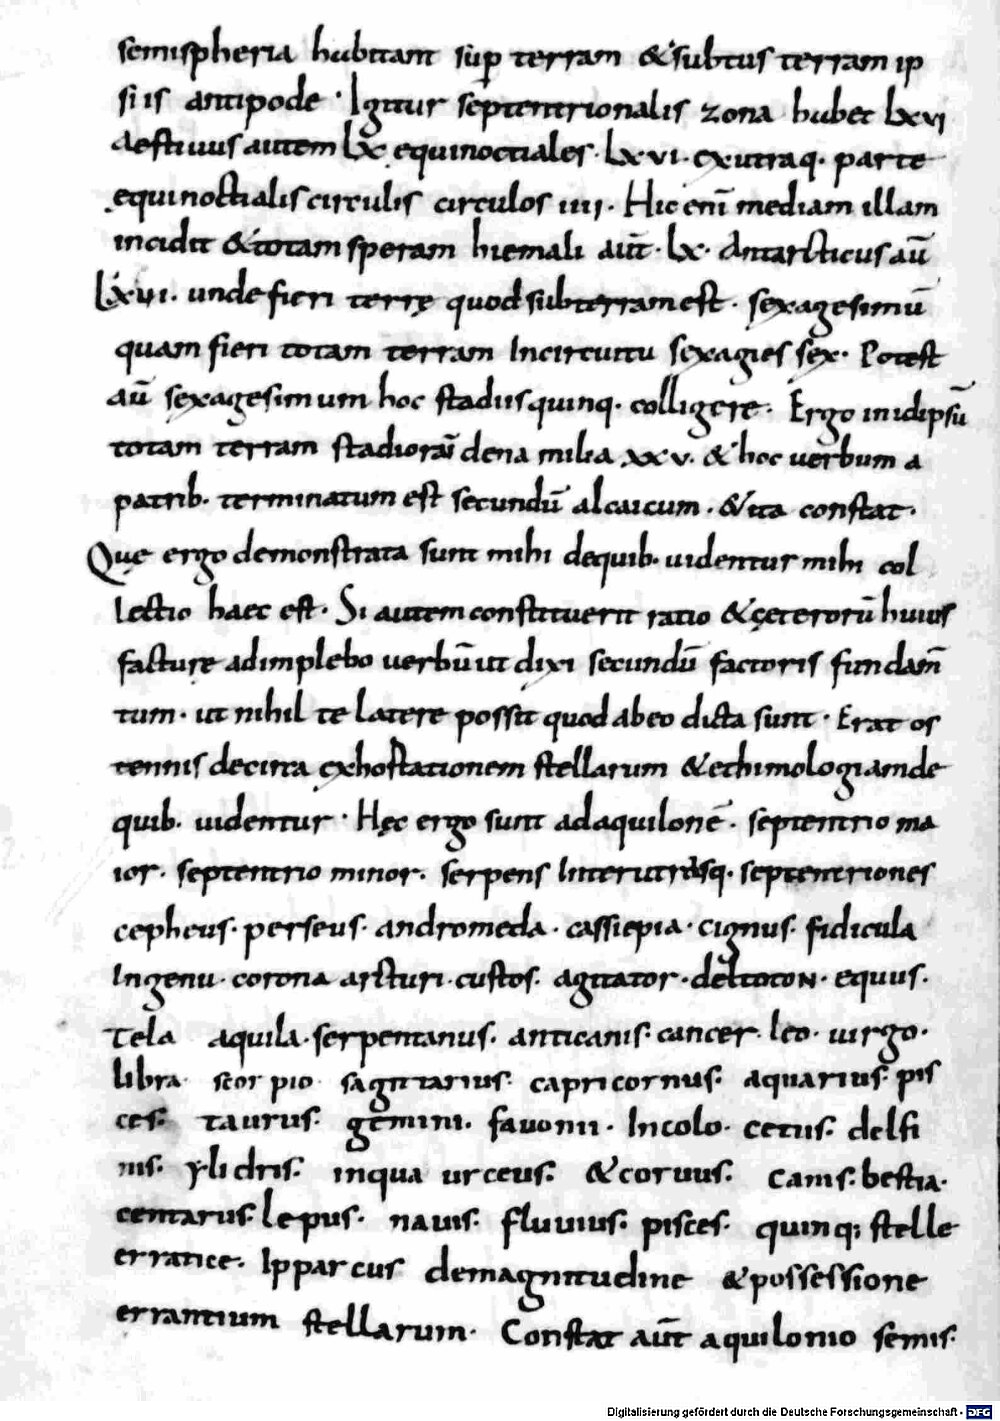 semispheria habitant sup̄ terram &subtus terram ip
si is antipode · Igitur septentrionalis zona habet lxvi
aestiuus autem lx equinoctiales · lxvi · exutraq· parte
equinoctialis circulis circulos iiii · Hic eni̅ mediam illam
incidit &totam speram hiemali aut̅ · lx · Antarcticus au̅
lxvi · unde fieri terrę quod subterram est · sexagesimu̅
quam fieri totam terram Incircuitu sexagies sex · Potest
au̅ sexagesimum hoc stadiis quinq· colligere · Ergo inidipsu̅
totam terram stadiora̅ dena milia xxv · & hoc uerbum a
patrib· terminatum est secundu̅ alcaicum · &ita constat ·
Quę ergo demonstrata sunt mihi dequib· uidentur mihi col
lectio haec est · Si autem constituerit ratio &ceteroru̅ huius
facturę adimplebo uerbu̅ ut dixi secundu̅ factoris fundam̅
tum · ut nihil te latere possit quod abeo dicta sunt · Erat os
tennis decirca exhostationem stellarum &ethimologiamde
quib· uidentur · Hęc ergo sunt adaquilone̅ · septentrio ma
ior · septentrio minor · serpens Interutrasq· septentriones
cepheus · perseus · andromeda · cassiepia · cignus · fidicula
Ingenu · corona arcturi · custos · agitator · deltoton · equus ·
Tela aquila · serpentanus · anticanis · cancer · leo · uirgo ·
libra · scorpio · sagittarius · capricornus · aquarius · pis
ces · taurus · gemini · fauonii · Incolo · cetus · delfi
nis · ylidris · inqua urceus · &coruus · canis · bestia ·
centarus · lepus · nauis · fluuius · pisces · quinq; stelle
erratice · Ipparcus demagnitudine &possessione
errantium stellarum · Constat aut̅ aquilonio semis·
Digitalisierung gefördert durch die Deutsche Forschungsgemeinschaft - DFG